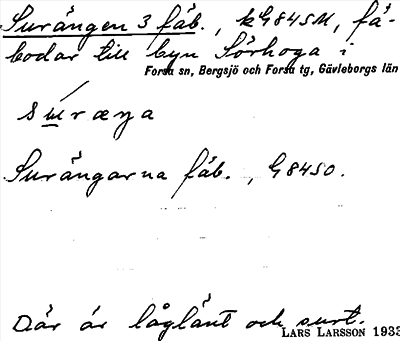 Surängen 3 fäb., kG84SM, fä-
bodar till byn Sörhoga i
Forsa sn, Bergsjö och Forsa tg, Gävleborgs län
Surängarna fäb., G84SO.
Där är låglänt och surt.
LARS LARSSON 1933